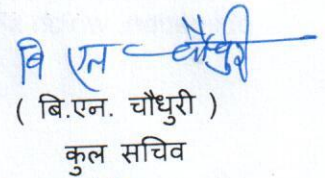 बि एन चौधुरी
( बि.एन. चौधुरी )
कुल सचिव